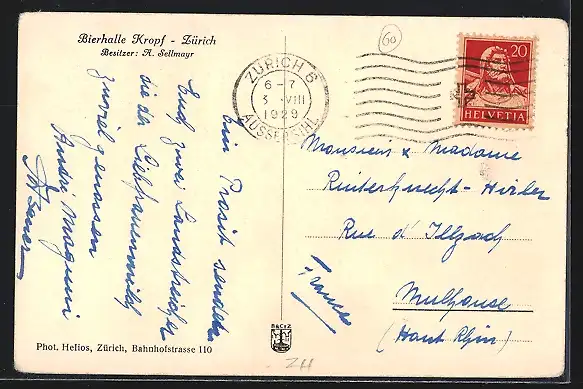 Bierhalle Kropf - Zürich
Besitzer: A. Sellmayr
60
ZÜRICH 6
6-7
3. VIII
1929
AUSSERSIHL
20
HELVETIA
Ein Prosit senden
Euch zwei Landstreicher
die der Liebfraumilch
zuviel genossen
André Maguin
Monsieur & Madame
Reuterknecht-Hirler
Rue d'Illzach
Mulhouse
(Haut Rhin)
France
Phot. Helios, Zürich, Bahnhofstrasse 110
ZH